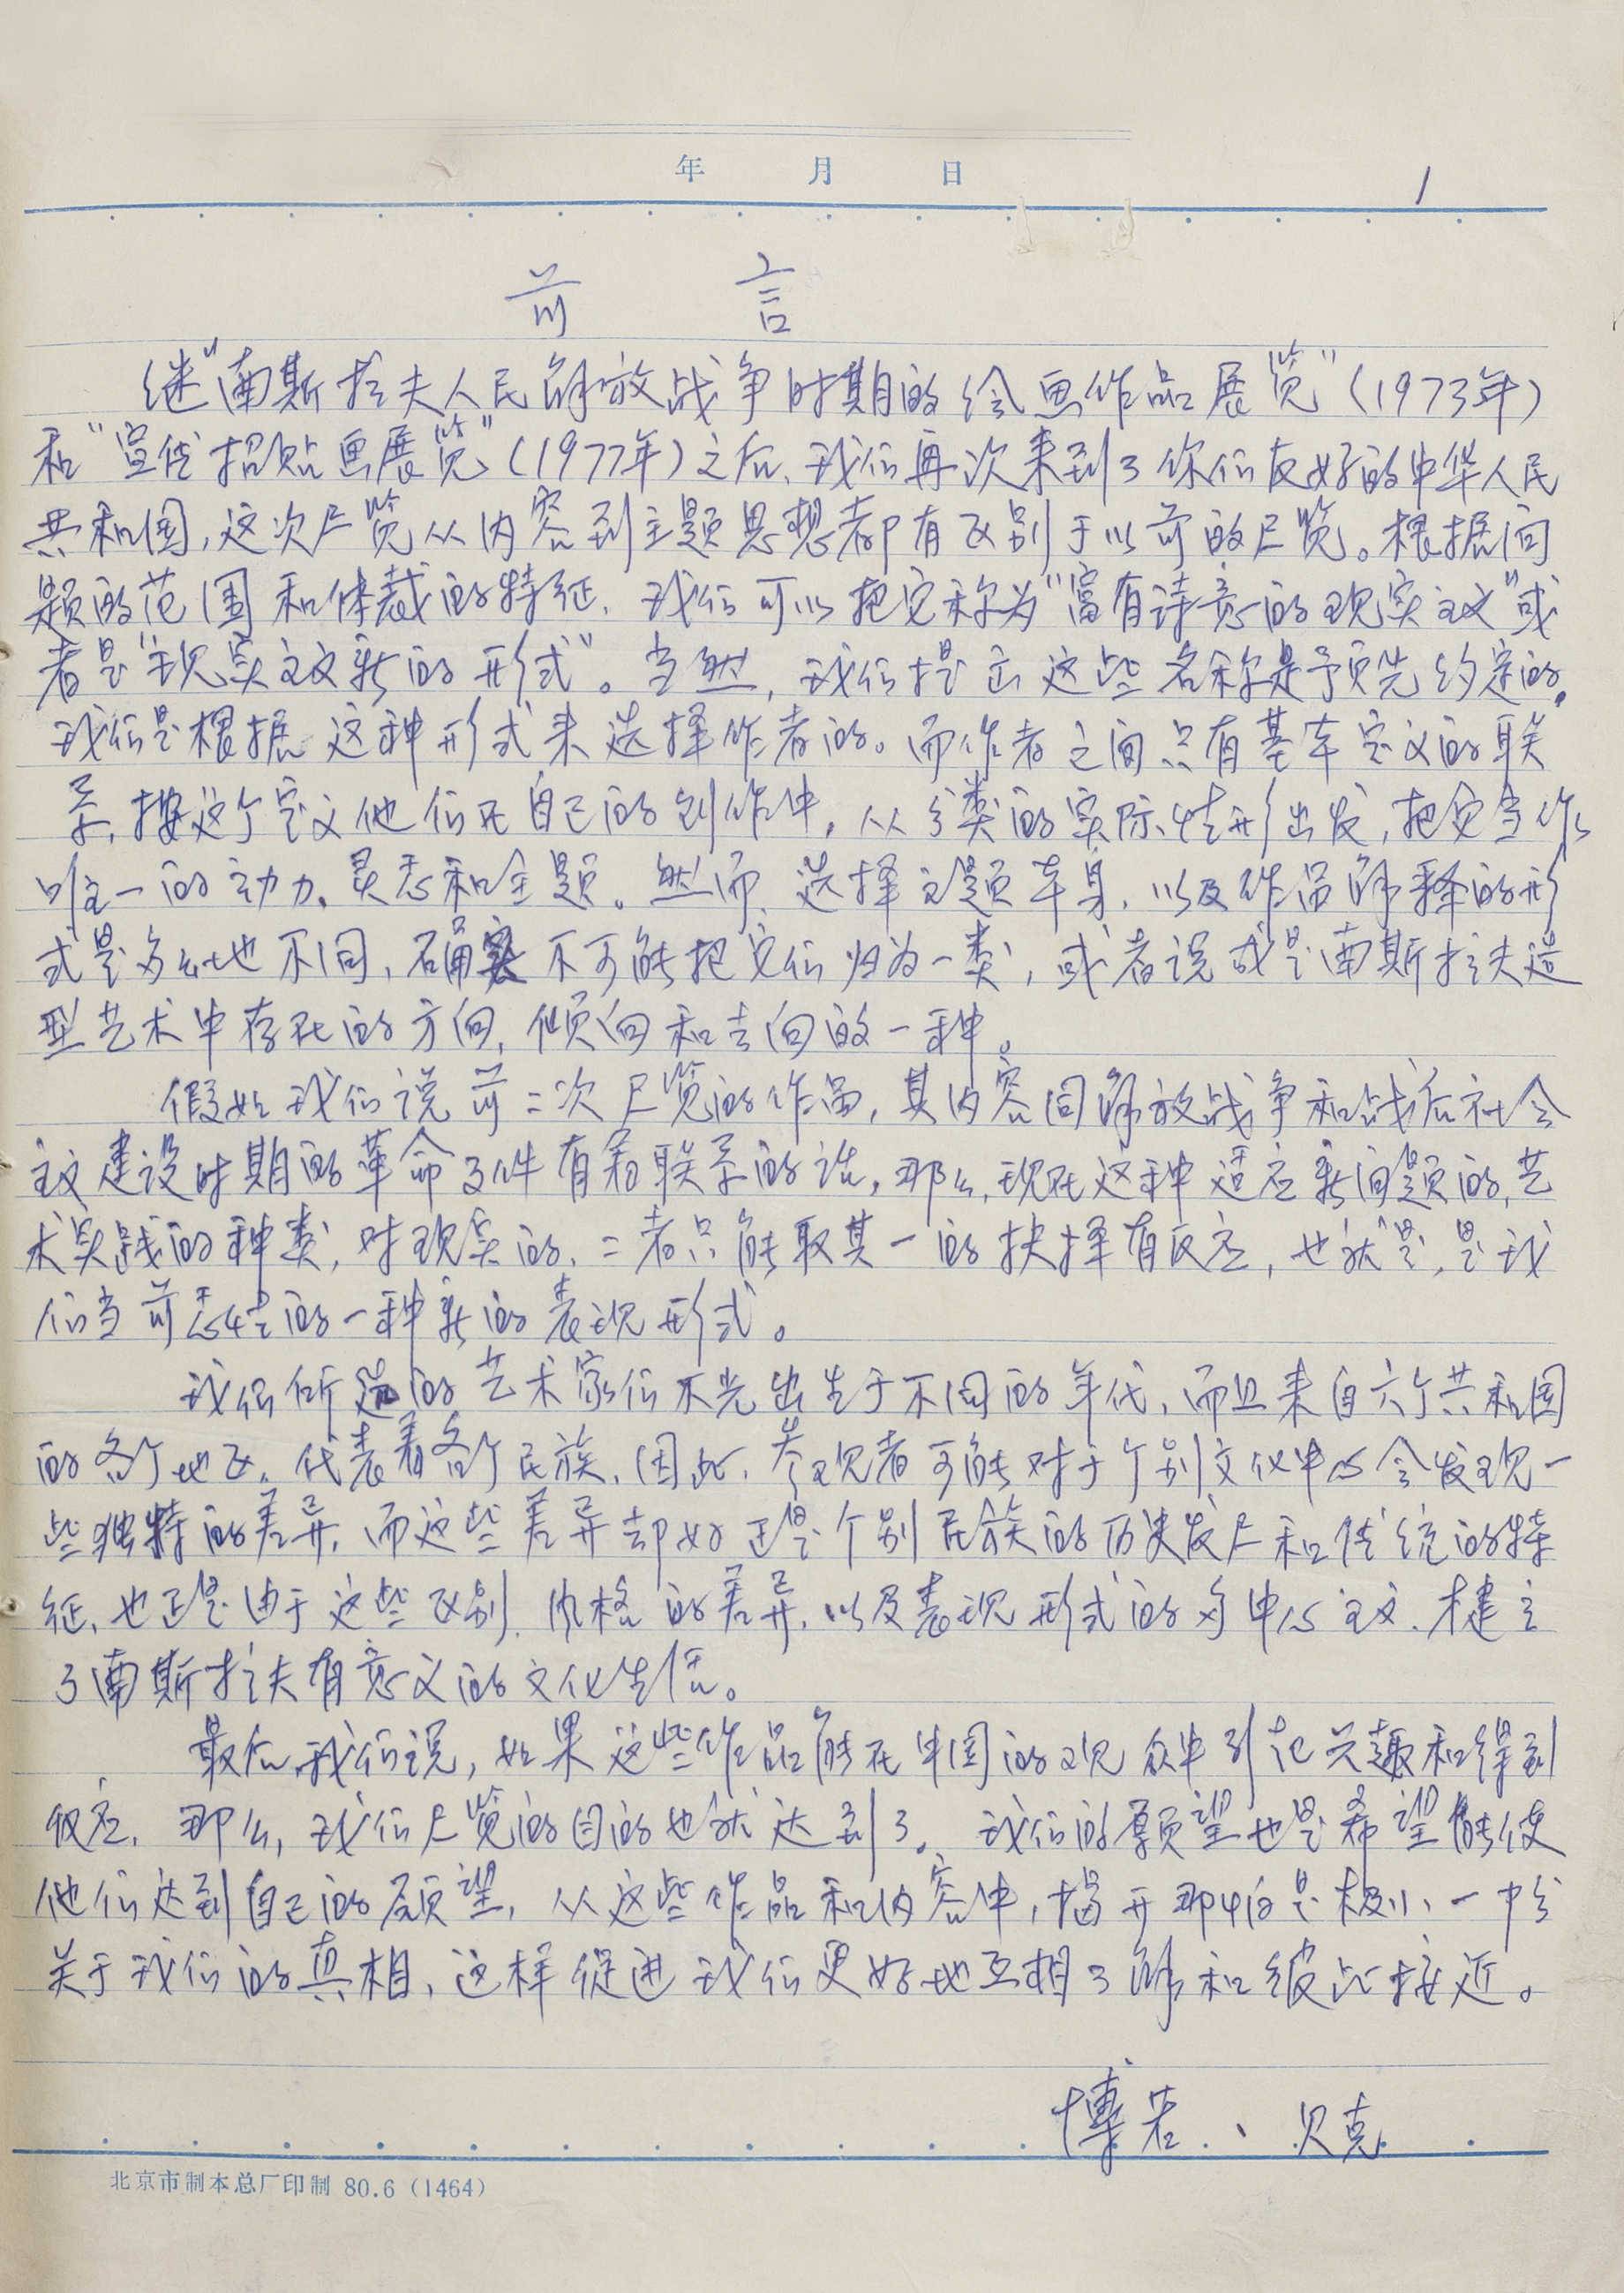 年 月 日
1
前 言
继"南斯拉夫人民解放战争时期的绘画作品展览"(1973年)
和"宣传招贴画展览"(1977年)之后、我们再次来到了你们友好的中华人民
共和国,这次尸览从内容到主题思想都有区别于以前的尸览。根据问
题的范围和体裁的特征、我们可以把它称为"富有诗意的现实主义"或
者是"现实主义新的形式"。当然,我们提出这些名称是予先约定的,
我们是根据这种形式来选择作者的。而作者之间只有基本定义的联
系,按这个定义他们在自己的创作中,从分类的实际情形出发,把它当作
唯一的动力、灵感和主题。然而、选择主题本身、以及作品解释的形
式是多么地不同、确实不可能把它们归为一类,或者说成是南斯拉夫造
型艺术中存在的方向,倾向和去向的一种。
假如我们说前二次尸览的作品,其内容同解放战争和战后社会
主义建设时期的革命事件有着联系的话,那么,现在这种适应新问题的,艺
术实践的种类,对现实的、二者只能取其一的抉择有反应,也就是,是我
们当前感情的一种新的表现形式。
我们所选的艺术家们不光出生于不同的年代,而且来自六个共和国
的各个地区,代表着各个民族,因此,参观者可能对于个别文化中心会发现一
些独特的差异,而这些差异却好正是个别民族的历史发尸和传统的特
征,也正是由于这些区别、风格的差异,以及表现形式的多中心主义、建立
了南斯拉夫有意义的文化生活。
最后,我们说,如果这些作品能在中国的观众中引起兴趣和得到
反应,那么,我们尸览的目的也就达到了。我们的愿望也是希望能使
他们达到自己的愿望,从这些作品和内容中,揭开那怕是极小一部分
关于我们的真相,这样促进我们更好地互相了解和彼此接近。
博若、贝克
北京市制本总厂印制 80.6 (1464)